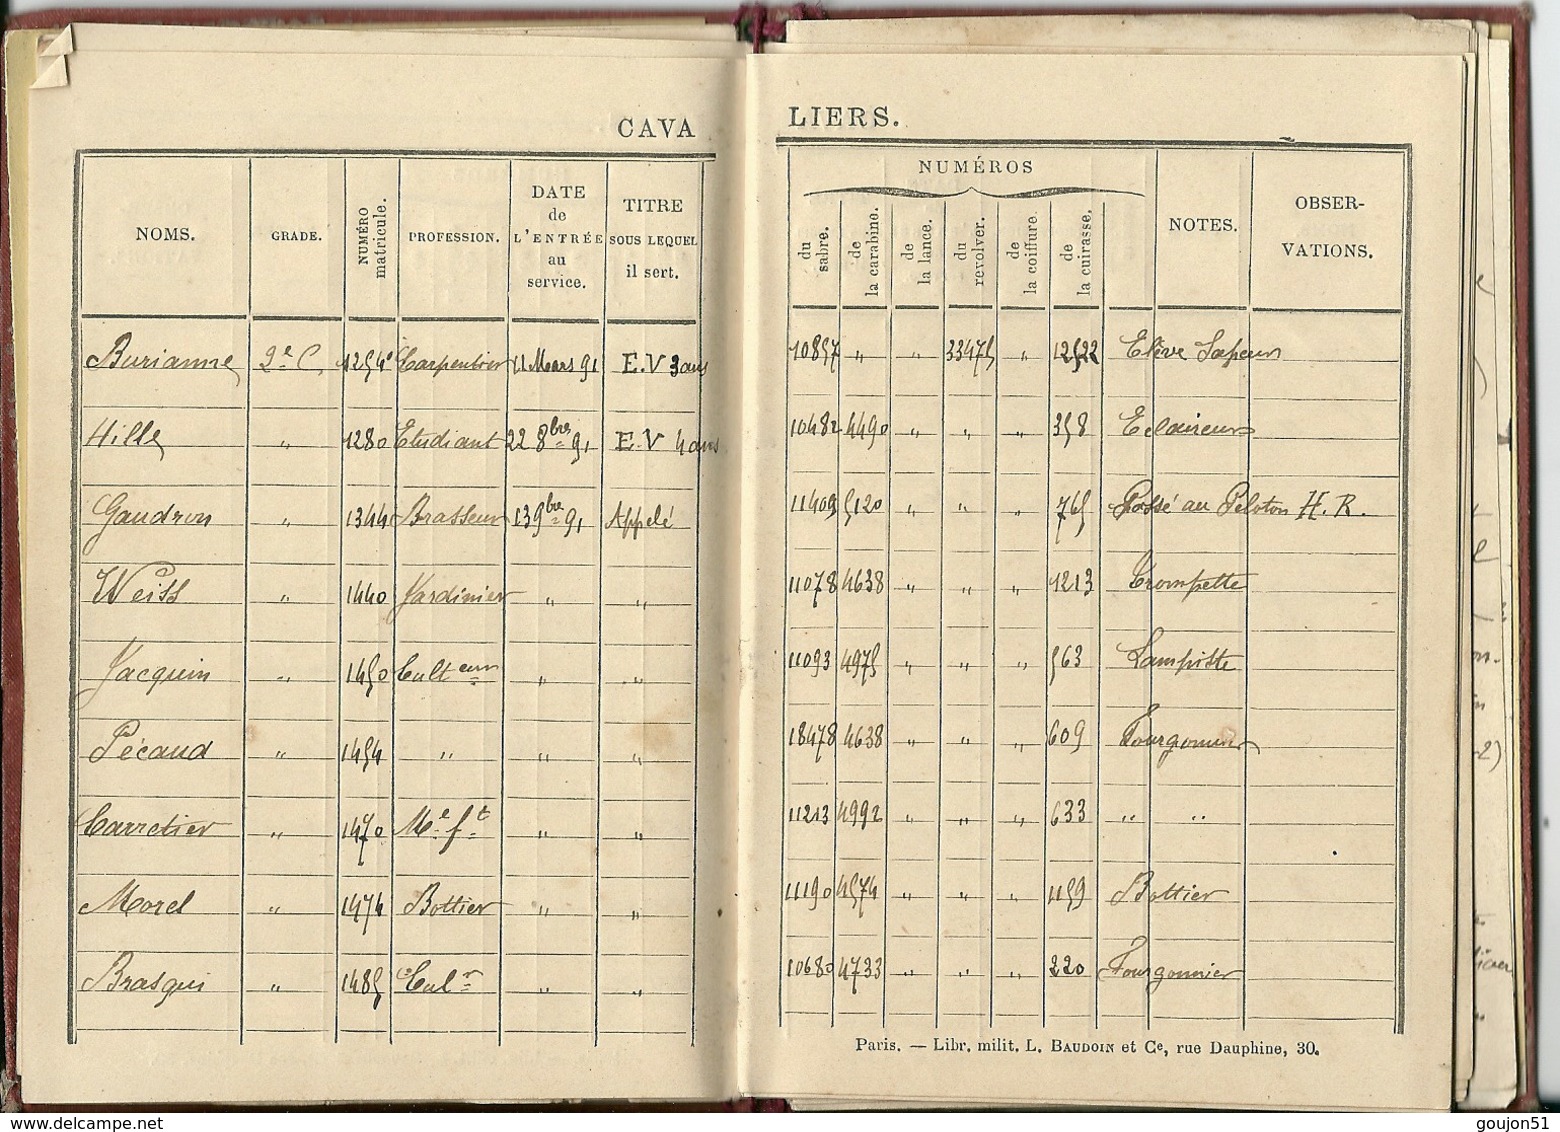 CAVA LIERS.
NOMS. GRADE. NUMÉRO matricule. PROFESSION. DATE de L'ENTRÉE au service. TITRE SOUS LEQUEL il sert. NUMÉROS du sabre. de la carabine. de la lance. du revolver. de la coiffure. de la cuirasse. NOTES. OBSER-VATIONS.
Burianne 2e C. Carpentier 11 Mars 91 E.V 3 ans 10857 " " 33475 " 12522 Elève Sapeur
Hille " 1280 Etudiant 22 8bre 91 E.V 4 ans 10482 4490 " " " 358 Eclaireur
Gaudron " 1344 Brasseur 13 9bre 91 Appelé 11409 5120 " " " 765 Passé au Peloton H.R.
Weiss " 1440 Jardinier " " 11078 4638 " " " 1213 Trompette
Jacquin " 1450 Culteur " " 11093 4975 " " " 563 Lampiste
Pécaud " 1454 " " " 18478 4638 " " " 609 Fourgonnier
Carretier " 1470 Me ft " " 11213 4992 " " " 633 " "
Morel " 1474 Bottier " " 11190 4574 " " " 1159 Bottier
Brasqui " 1485 Culr " " 10680 4733 " " " 220 Fourgonnier
Paris. — Libr. milit. L. BAUDOIN et Ce, rue Dauphine, 30.
www.delcampe.net
goujon51